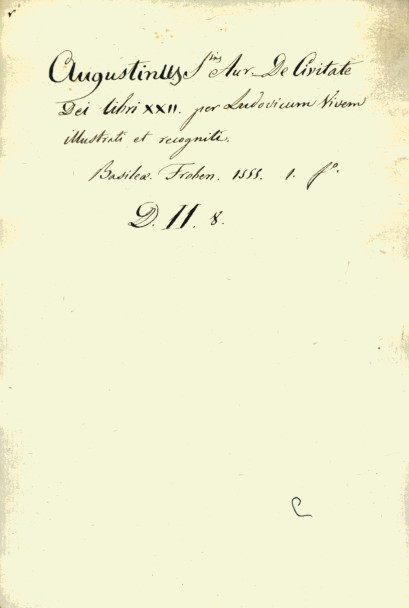 Augustinus S^tus Aur. De Civitate
Dei libri XXII. per Ludovicum Vivem
illustrati et recogniti.
Basileæ. Froben. 1555. 1. f°.
D. II. 8.
C